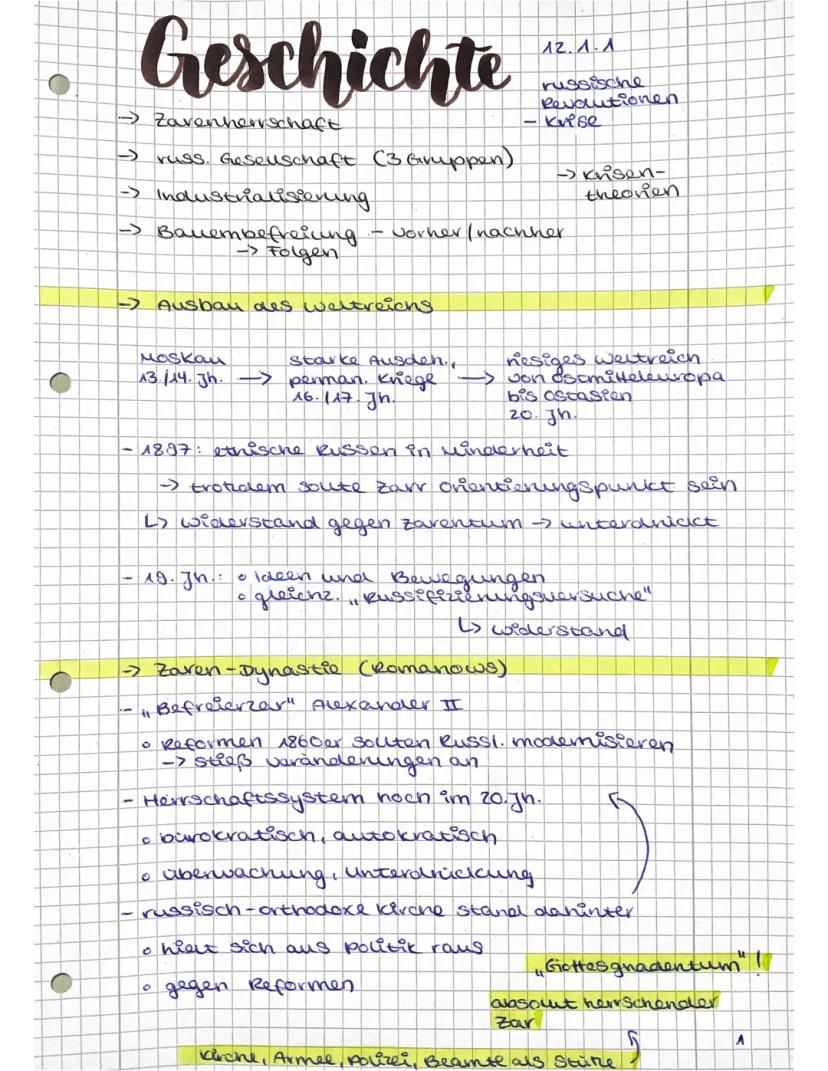 Geschichte
12.1.1
russische
Revolutionen
- Krise
→ Zarenherrschaft
→ russ. Gesellschaft (3 Gruppen)
→ Krisen-
theorien
→ Industrialisierung
→ Bauernbefreiung - vorher/nachher
→ Folgen
→ Ausbau des Weltreichs
Moskau
13./14. Jh. →
starke Ausdeh.,
perman. Kriege →
16./17. Jh.
riesiges Weltreich
von Ostmitteleuropa
bis Ostasien
20. Jh.
- 1897: ethnische Russen in Minderheit
→ trotzdem sollte Zarr Orientierungspunkt sein
↳ Widerstand gegen Zarentum → unterdrückt
- 19. Jh.: ∘ Ideen und Bewegungen
∘ gleichz. „Russifizierungsversuche"
↳ Widerstand
→ Zaren-Dynastie (Romanows)
- „Befreierzar" Alexander II
∘ Reformen 1860er sollten Russl. modernisieren
→ stieß Veränderungen an
- Herrschaftssystem noch im 20. Jh.
∘ bürokratisch, autokratisch
∘ Überwachung, Unterdrückung
- russisch-orthodoxe Kirche stand dahinter
∘ hielt sich aus Politik raus
∘ gegen Reformen
„Gottesgnadentum"!
absolut herrschender
Zar
Kirche, Armee, Polizei, Beamte als Stütze
1